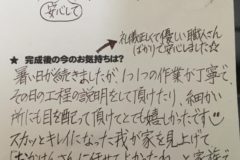 安心して
礼儀正しくて優しい職人さん
ばかりで安心しました☆
★ 完成後の今のお気持ちは?
暑い日が続きましたが、1つ1つの作業が丁寧で、
その日の工程の説明をして頂けたり、細かい
所にも目を配って頂けてとても嬉しかったです
スカッとキレイになった我が家を見上げて